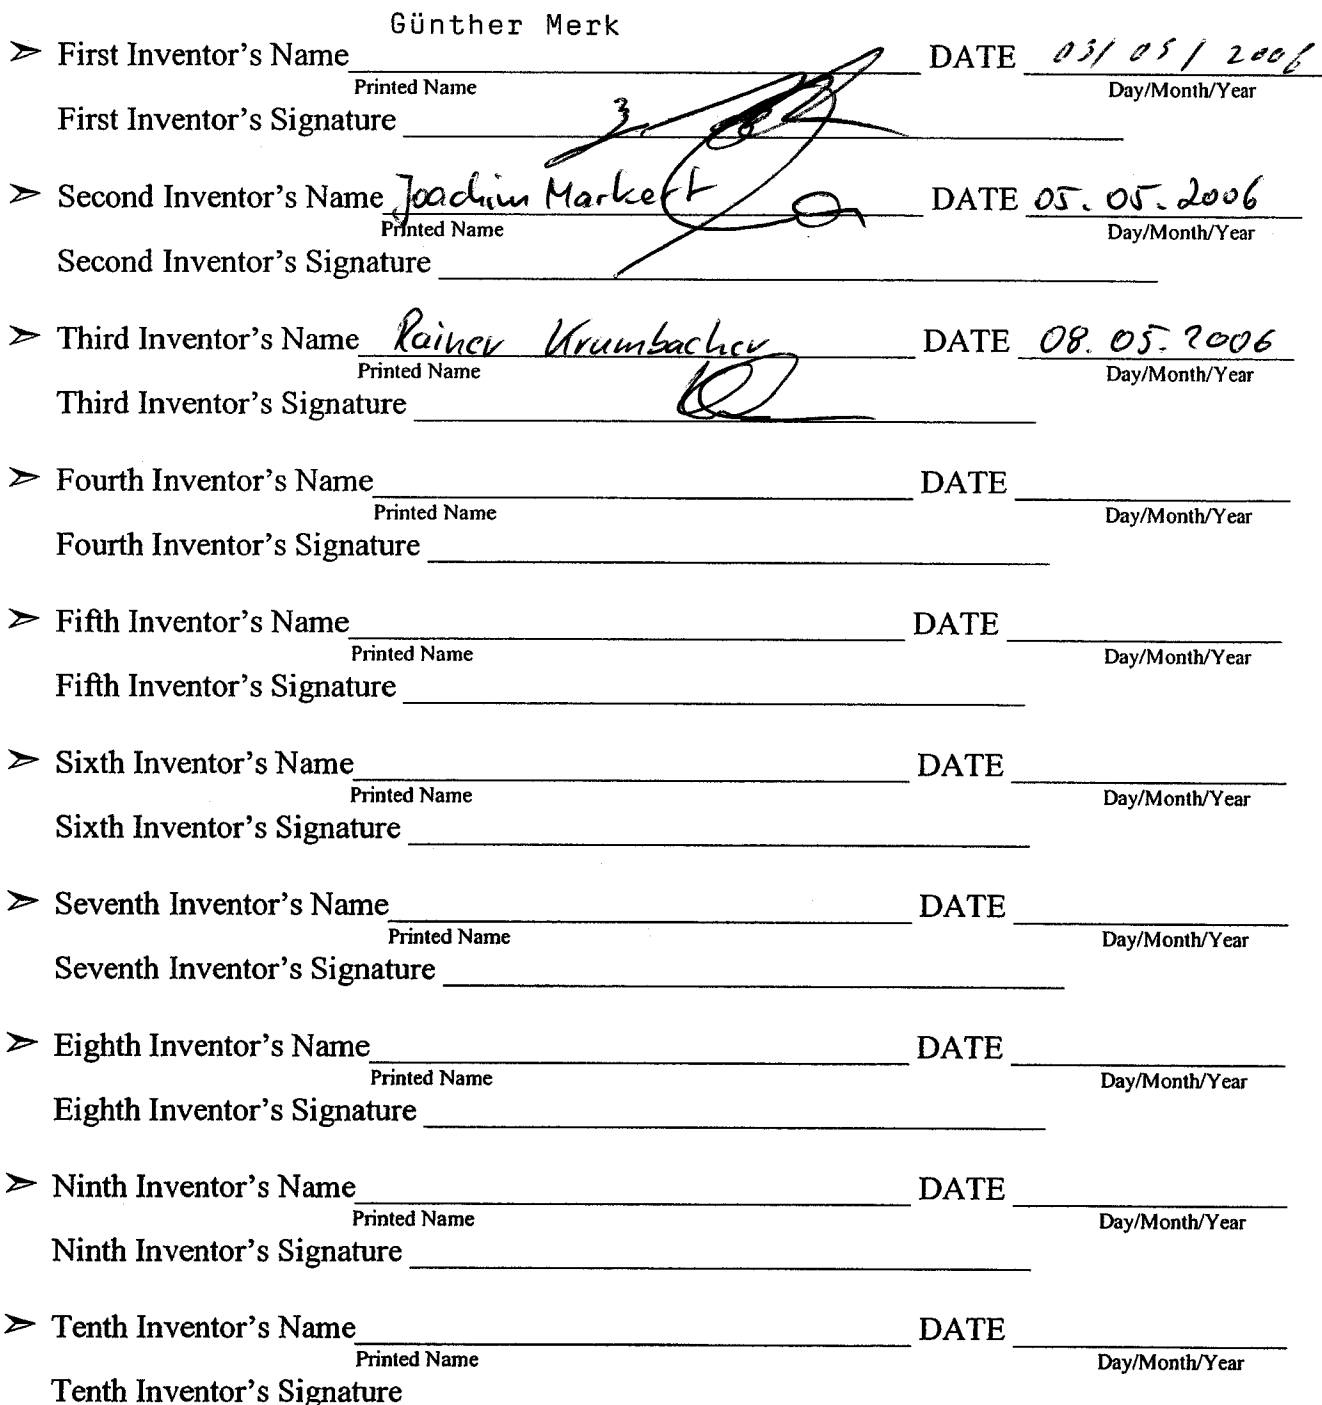 Günther Merk
➢ First Inventor's Name DATE 03/05/2006
Printed Name Day/Month/Year
First Inventor's Signature
➢ Second Inventor's Name Joachim Markert DATE 05.05.2006
Printed Name Day/Month/Year
Second Inventor's Signature
➢ Third Inventor's Name Rainer Krumbacher DATE 08.05.2006
Printed Name Day/Month/Year
Third Inventor's Signature
➢ Fourth Inventor's Name DATE
Printed Name Day/Month/Year
Fourth Inventor's Signature
➢ Fifth Inventor's Name DATE
Printed Name Day/Month/Year
Fifth Inventor's Signature
➢ Sixth Inventor's Name DATE
Printed Name Day/Month/Year
Sixth Inventor's Signature
➢ Seventh Inventor's Name DATE
Printed Name Day/Month/Year
Seventh Inventor's Signature
➢ Eighth Inventor's Name DATE
Printed Name Day/Month/Year
Eighth Inventor's Signature
➢ Ninth Inventor's Name DATE
Printed Name Day/Month/Year
Ninth Inventor's Signature
➢ Tenth Inventor's Name DATE
Printed Name Day/Month/Year
Tenth Inventor's Signature